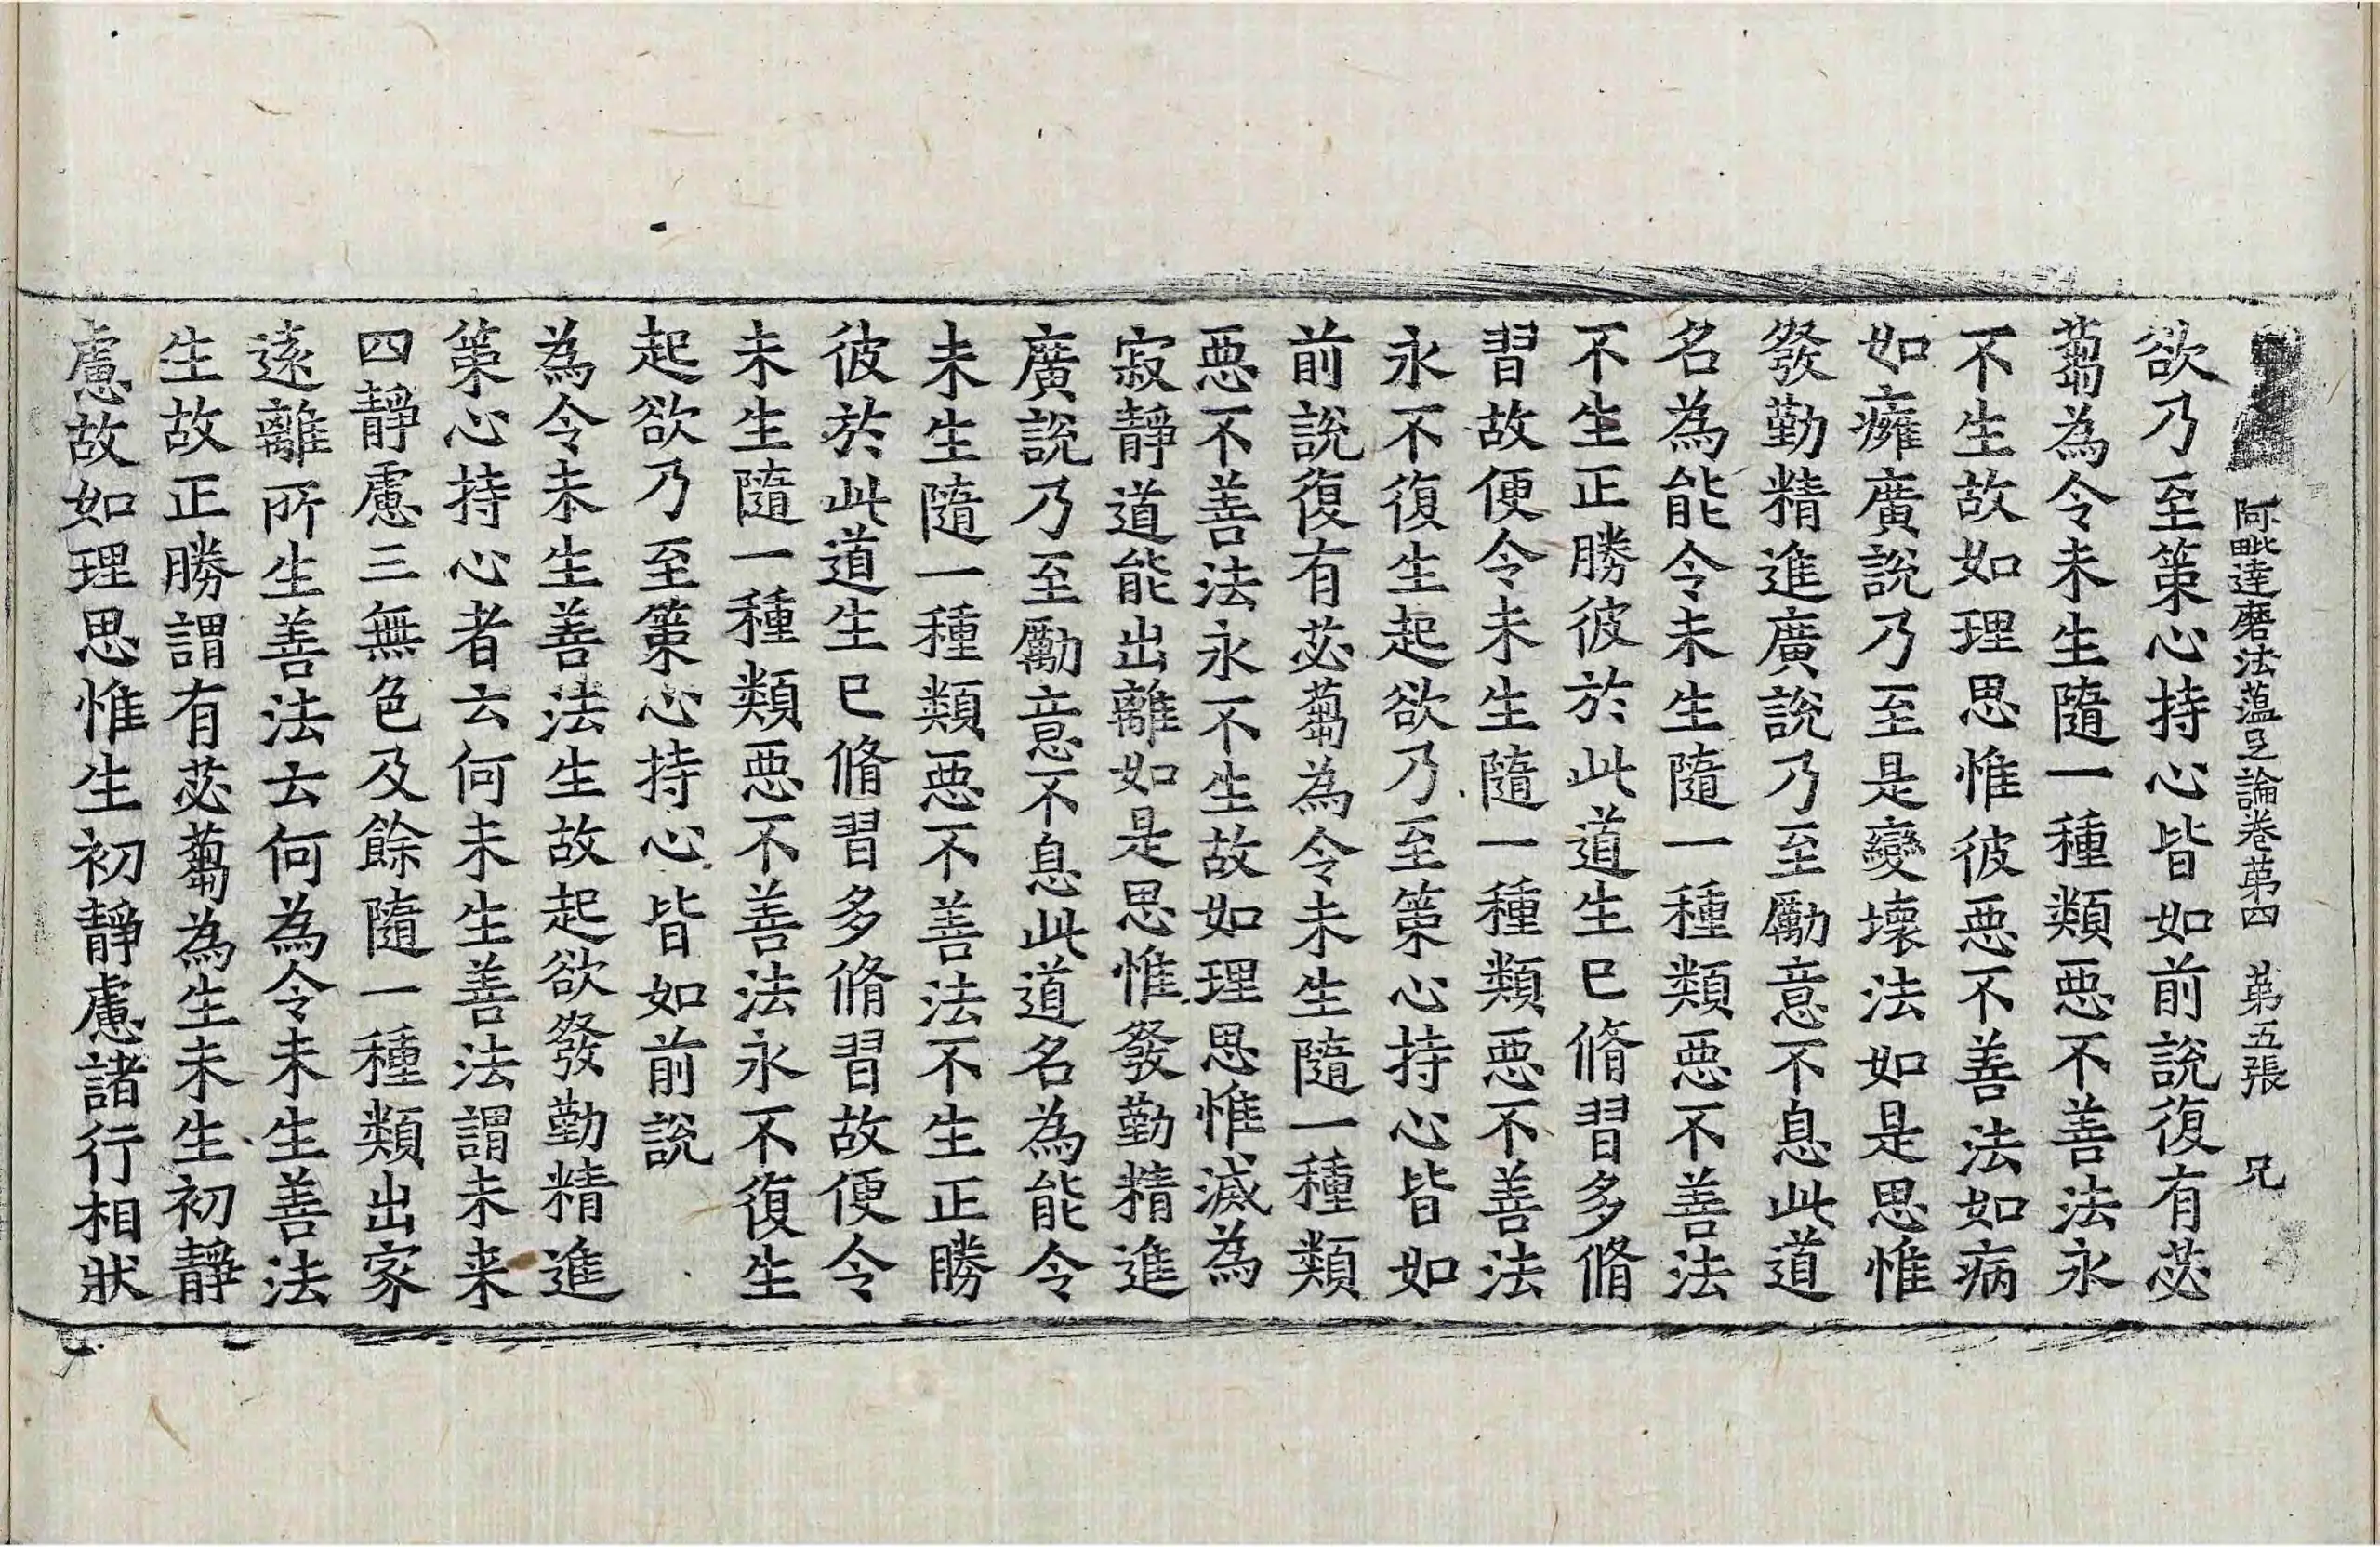 阿毗達磨法蘊足論卷苐四 苐五張 兄
欲乃至策心持心皆如前說復有苾
蒭為令未生隨一種類惡不善法永
不生故如理思惟彼惡不善法如病
如癰廣說乃至是變壞法如是思惟
發勤精進廣說乃至勵意不息此道
名為能令未生隨一種類惡不善法
不生正勝彼於此道生已脩習多脩
習故便令未生隨一種類惡不善法
永不復生起欲乃至策心持心皆如
前說復有苾蒭為令未生隨一種類
惡不善法永不生故如理思惟滅為
寂靜道能出離如是思惟發勤精進
廣說乃至勵意不息此道名為能令
未生隨一種類惡不善法不生正勝
彼於此道生已脩習多脩習故便令
未生隨一種類惡不善法永不復生
起欲乃至策心持心皆如前說
為令未生善法生故起欲發勤精進
策心持心者云何未生善法謂未来
四靜慮三無色及餘隨一種類出家
遠離所生善法云何為令未生善法
生故正勝謂有苾蒭為生未生初靜
慮故如理思惟生初靜慮諸行相狀